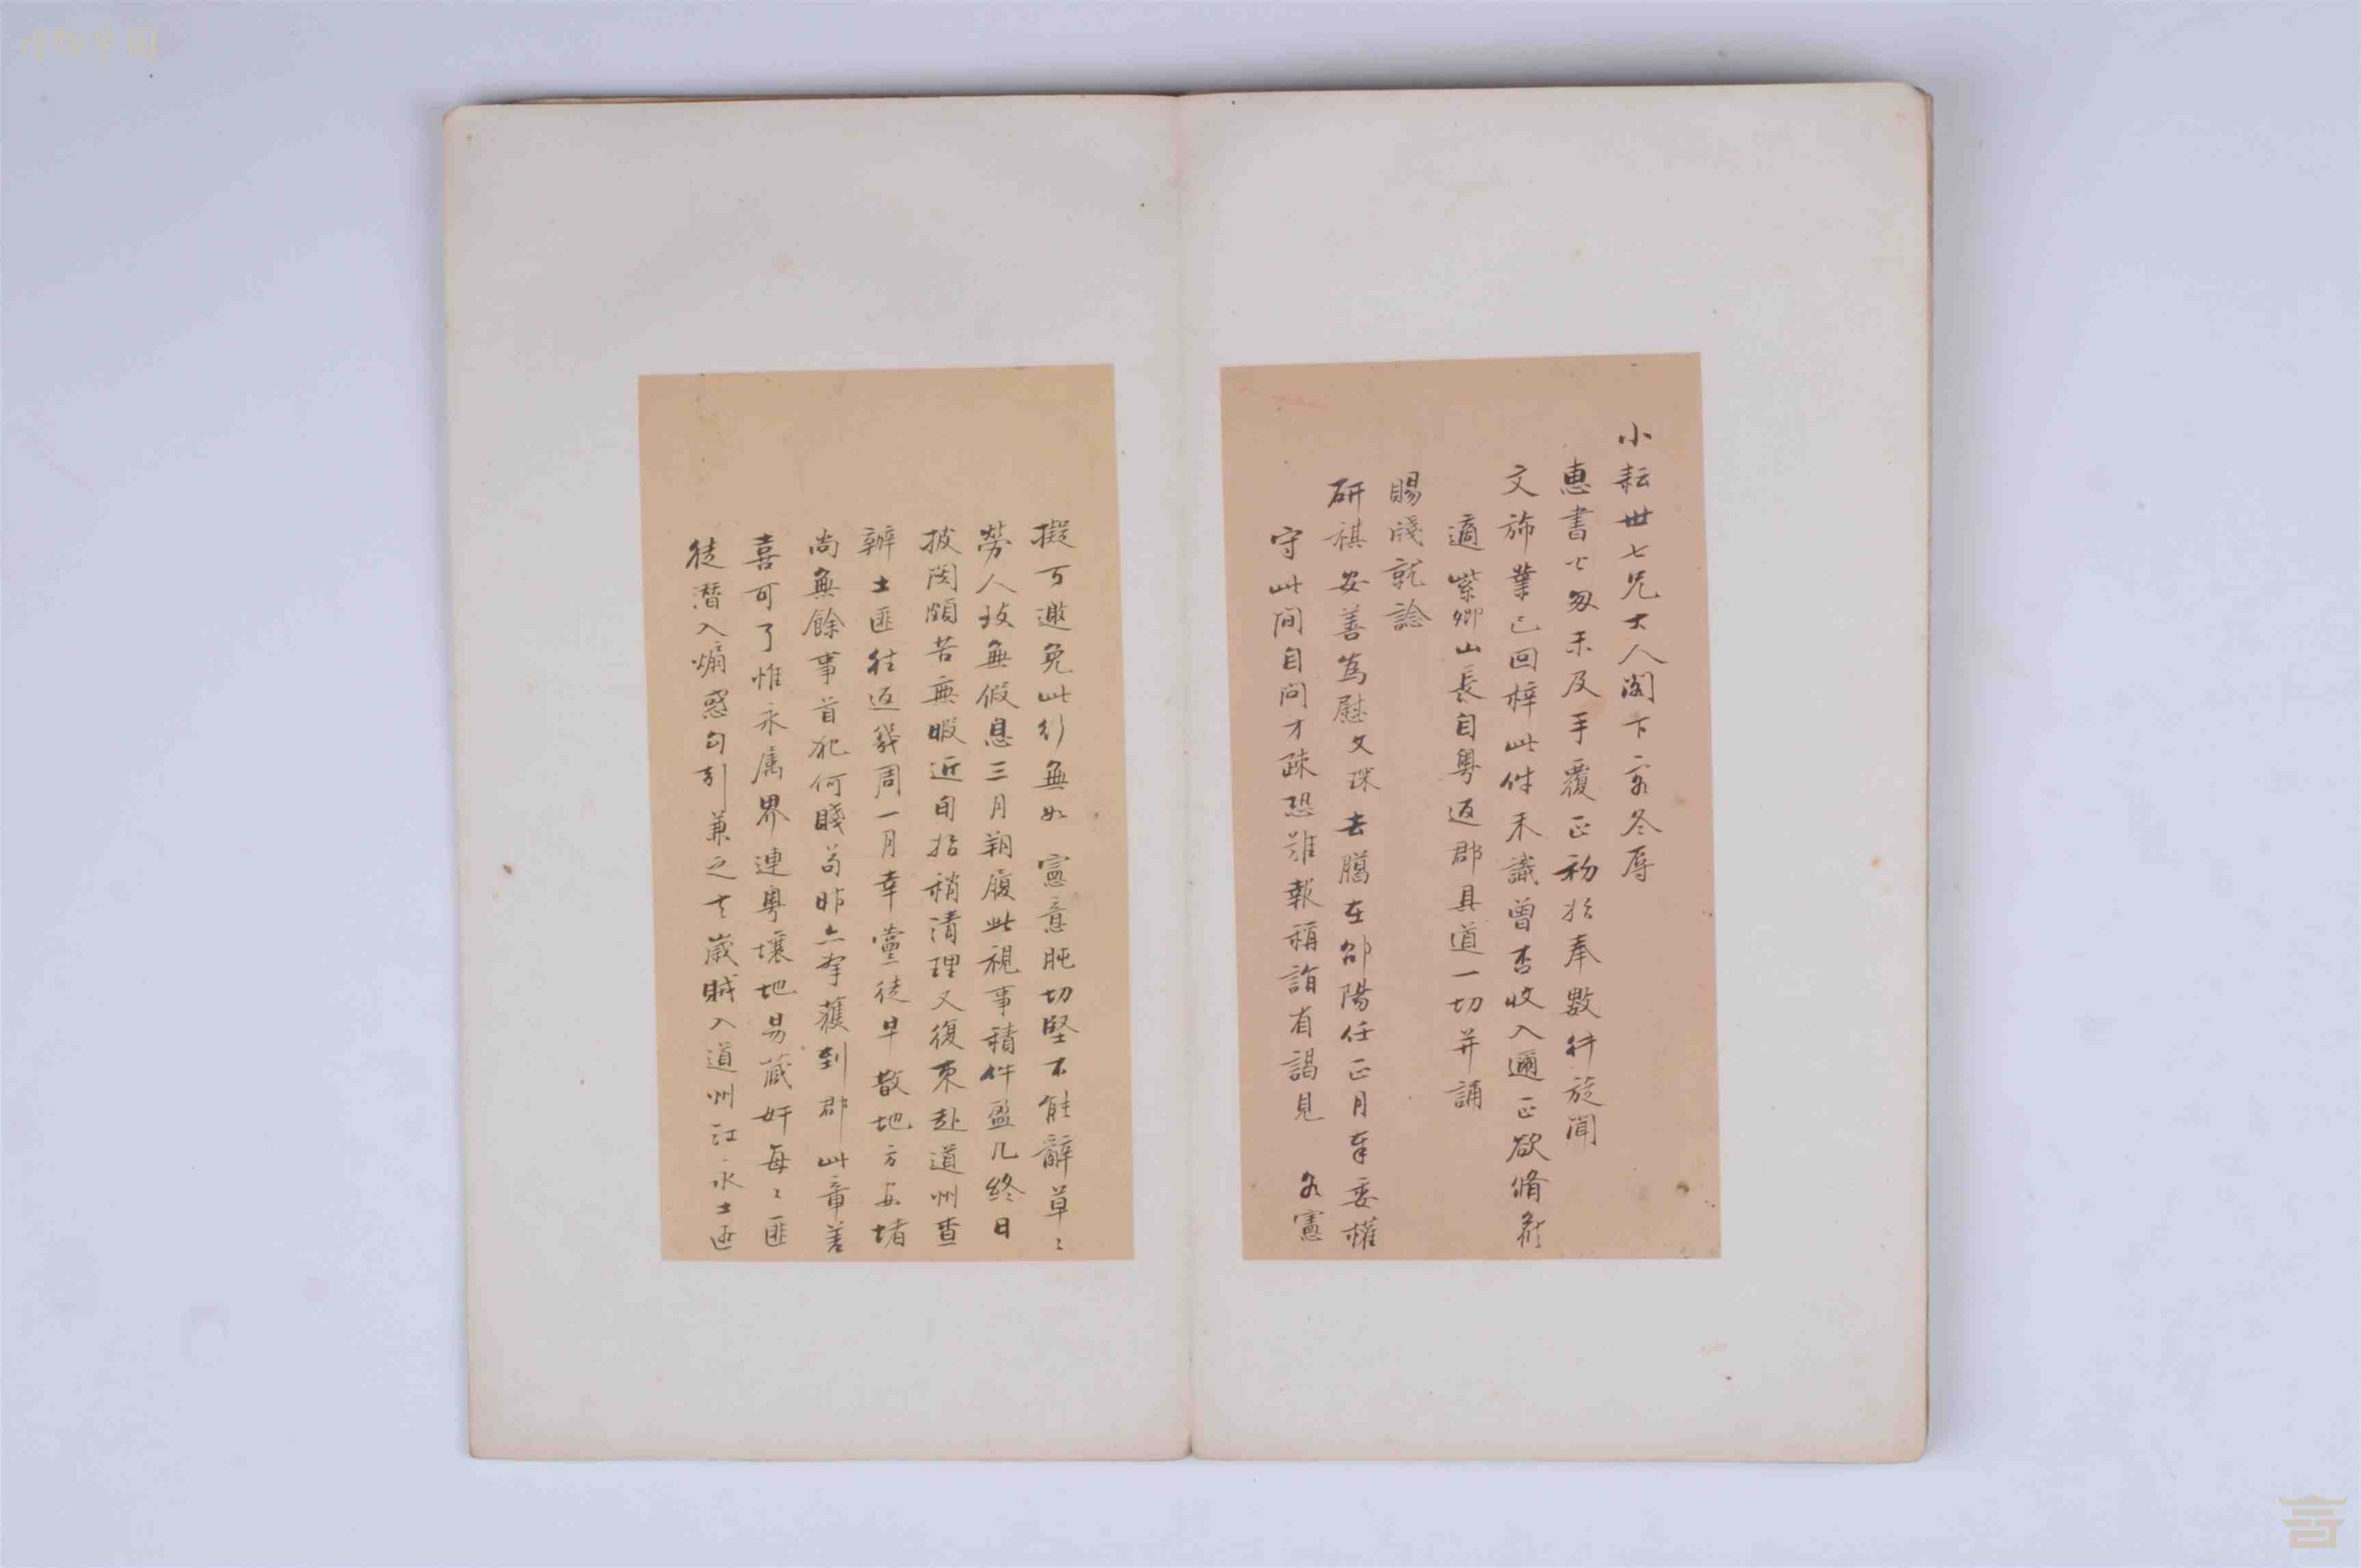 小耘世七兄大人阁下客冬辱
惠書匕匆未及手覆正初於奉數行旋聞
文斾業已回梓此件未識曾否收入邇正欲脩
適紫卿山長自粤返郡具道一切并誦
賜牋就諗
研祺安善為慰文琛去臈在邵陽任正月奉委權
守此間自问才疎恐難報稱詣省謁見各憲
擬可邀免此行無如憲意肫切堅不能辭草〻
勞人致無假息三月朔履此視事積件盈几終日
披閱頗苦無暇近旬始稍清理又復束赴道州查
辦土匪往返幾周一月幸黨徒早散地方安堵
尚無餘事首犯何賤苟昨亦拿獲到郡此章差
喜可了惟永属界連粤壤地易蔵奸每〻匪
徒潛入煽惑勾引兼之去歲賊入道州江永土匪